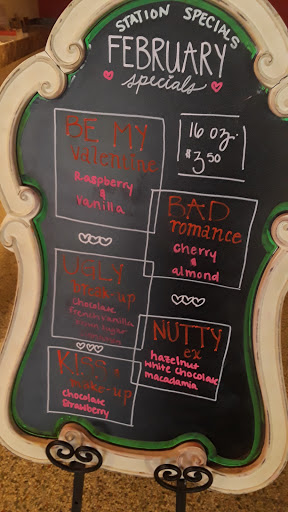 STATION SPECIALS
FEBRUARY
specials
BE MY
valentine
Raspberry
&
vanilla
16 oz.
$3.50
BAD
romance
cherry
&
almond
UGLY
break-up
chocolate
french vanilla
brown sugar
cinnamon
NUTTY
ex
hazelnut
white chocolate
macadamia
KISS &
make-up
chocolate
strawberry